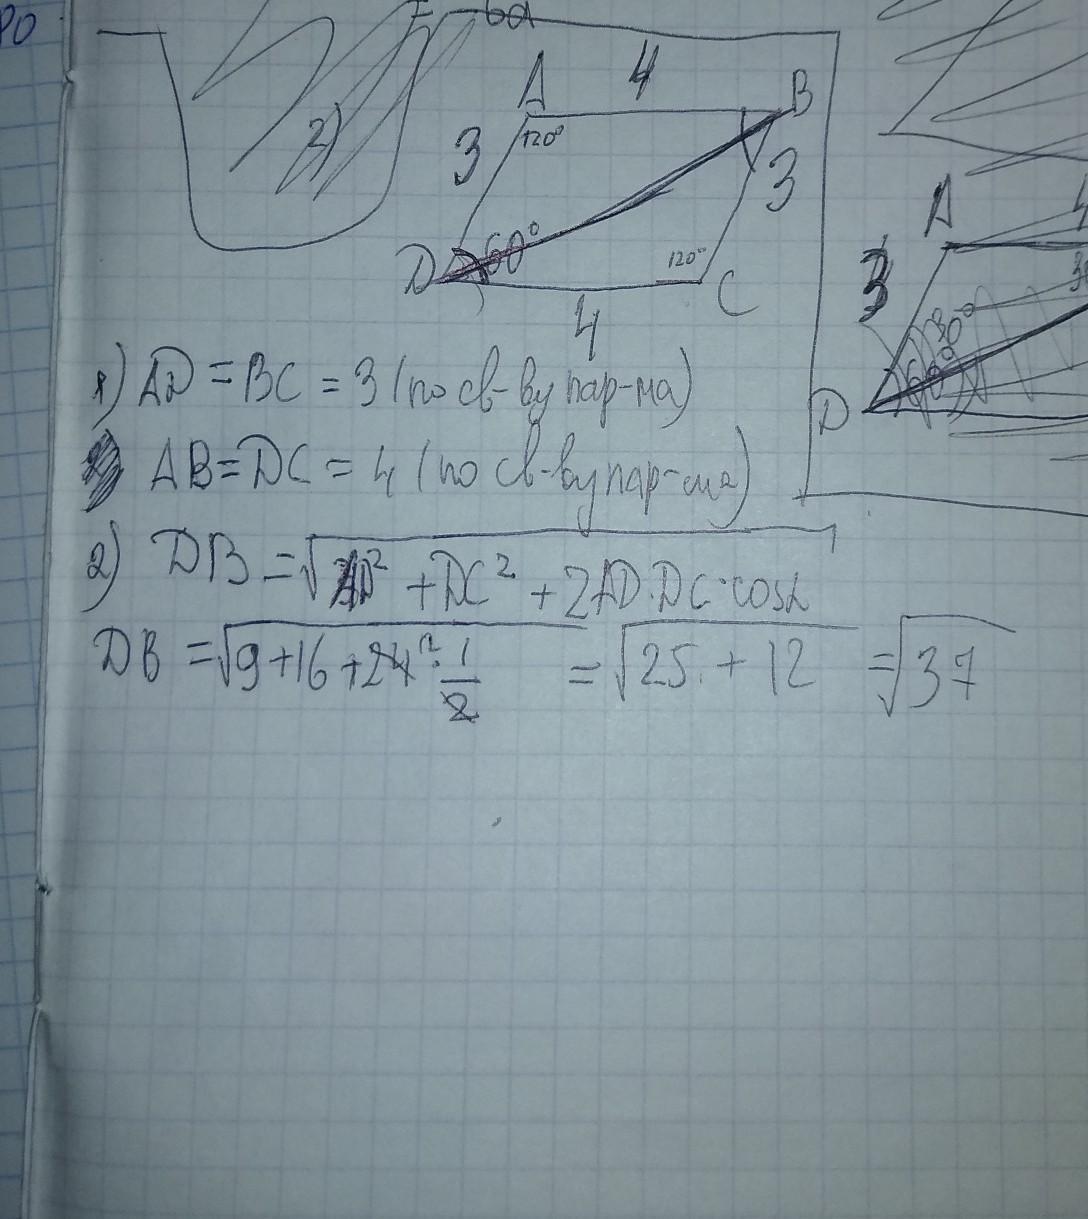 РО
2)
A 4 B
3 120° 3
D 60° 120° C
4
A
3 30°
D
1) AD = BC = 3 (по св-ву пар-ма)
AB = DC = 4 (по св-ву пар-ма)
2) DB = √AD² + DC² + 2AD·DC·cosα
DB = √9+16+24·1/2 = √25 + 12 = √37